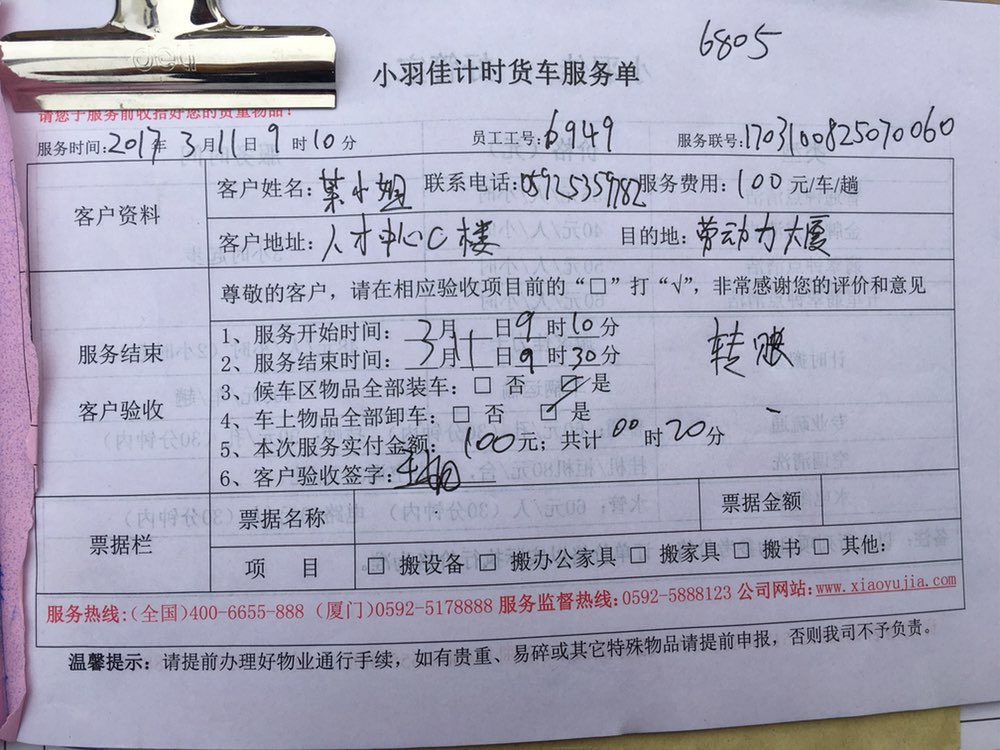 deli
6805
小羽佳计时货车服务单
请您于服务前收拾好您的贵重物品！
服务时间:2017年 3月11日9时10分 员工工号:6949 服务联号:170310082507060
客户资料
客户姓名:某小姐 联系电话:05925359782 服务费用:100元/车/趟
客户地址:人才中心C楼 目的地:劳动力大厦
服务结束
客户验收
尊敬的客户，请在相应验收项目前的“□”打“√”，非常感谢您的评价和意见
1、服务开始时间: 3月11日9时10分
2、服务结束时间: 3月11日9时30分
转账
3、候车区物品全部装车:□ 否 ☑ 是
4、车上物品全部卸车:□ 否 ☑ 是
5、本次服务实付金额: 100元; 共计 00时20分
6、客户验收签字:
票据栏
票据名称 票据金额
项 目 □ 搬设备 □ 搬办公家具 □ 搬家具 □ 搬书 □ 其他:
服务热线:(全国)400-6655-888 (厦门)0592-5178888 服务监督热线:0592-5888123 公司网站:www.xiaoyujia.com
温馨提示：请提前办理好物业通行手续，如有贵重、易碎或其它特殊物品请提前申报，否则我司不予负责。